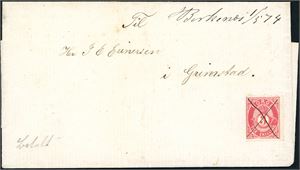 Til Birkenes 1/5 79
Hr. J. E. Evensen
i Grimstad.
betalt